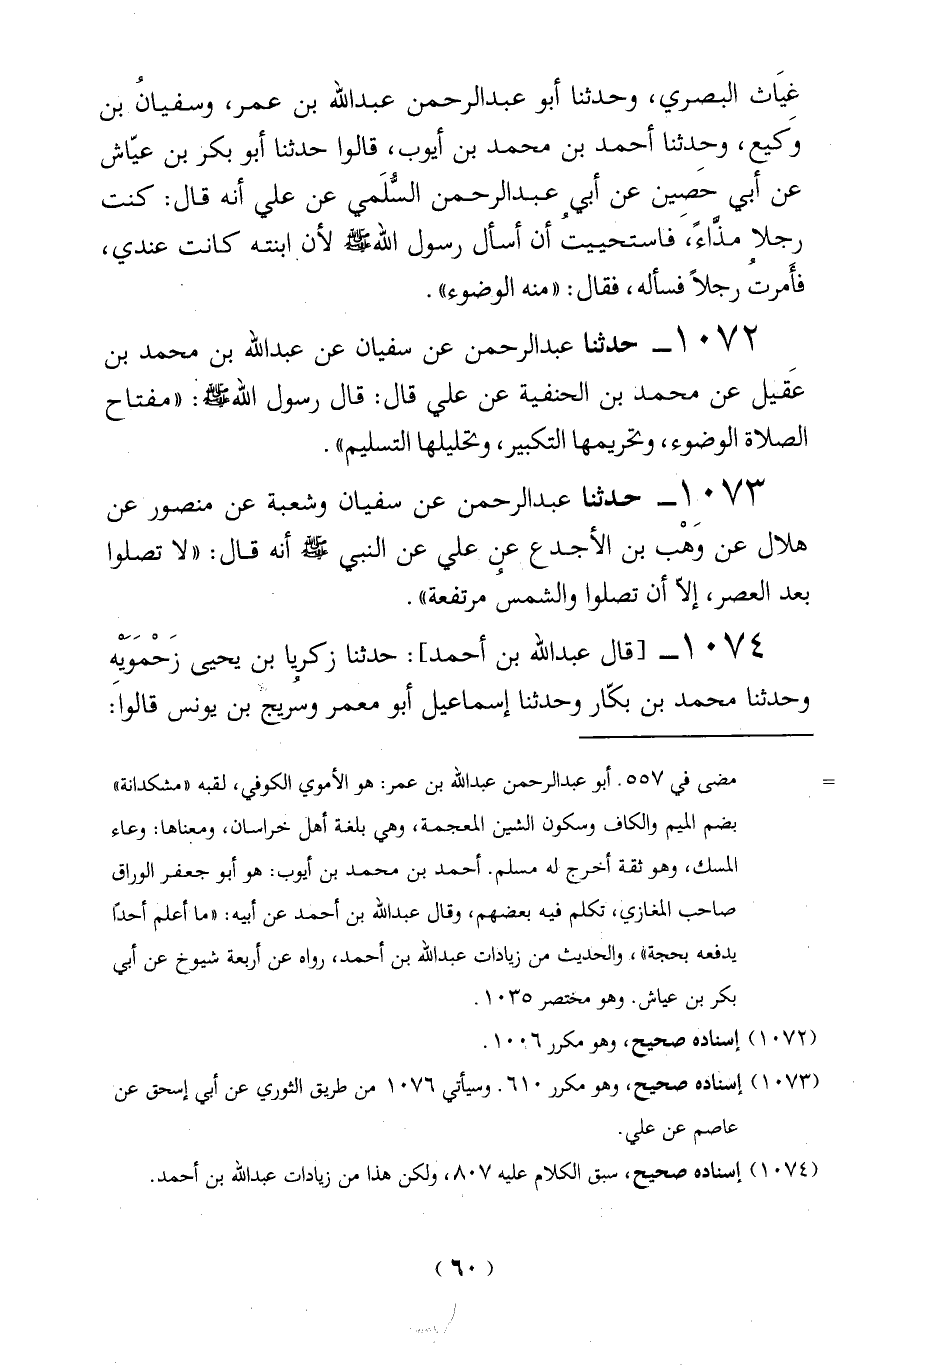 غِيَاث البصري، وحدثنا أبو عبدالرحمن عبدالله بن عمر، وسفيانُ بن
وَكيع، وحدثنا أحمد بن محمد بن أيوب، قالوا حدثنا أبو بكر بن عيّاش
عن أبي حَصِين عن أبي عبدالرحمن السُّلَمي عن علي أنه قال: كنت
رجلا مذَّاءً، فاستحييتُ أن أسأل رسول اللهﷺ لأن ابنته كانت عندي،
فأمرتُ رجلاً فسأله، فقال: «منه الوضوء».
١٠٧٢ــ حدثنا عبدالرحمن عن سفيان عن عبدالله بن محمد بن
عَقيل عن محمد بن الحنفية عن علي قال: قال رسول اللهﷺ: «مفتاح
الصلاة الوضوء، وتحريمها التكبير، وتحليلها التسليم».
١٠٧٣ــ حدثنا عبدالرحمن عن سفيان وشعبة عن منصور عن
هلال عن وَهْب بن الأجدع عن علي عن النبي ﷺ أنه قال: «لا تصلوا
بعد العصر، إلاّ أن تصلوا والشمسُ مرتفعة».
١٠٧٤ــ [قال عبدالله بن أحمد]: حدثنا زكريا بن يحيى زَحْمَوَيْهِ
وحدثنا محمد بن بكّار وحدثنا إسماعيل أبو معمر وسريجُ بن يونس قالوا:
= مضى في ٥٥٧. أبو عبدالرحمن عبدالله بن عمر: هو الأموي الكوفي، لقبه «مشكدانة»
بضم الميم والكاف وسكون الشين المعجمة، وهي بلغة أهل خراسان، ومعناها: وعاء
المسك، وهو ثقة أخرج له مسلم. أحمد بن محمد بن أيوب: هو أبو جعفر الوراق
صاحب المغازي، تكلم فيه بعضهم، وقال عبدالله بن أحمد عن أبيه: «ما أعلم أحدًا
يدفعه بحجة»، والحديث من زيادات عبدالله بن أحمد، رواه عن أربعة شيوخ عن أبي
بكر بن عياش. وهو مختصر ١٠٣٥.
(١٠٧٢) إسناده صحيح، وهو مكرر ١٠٠٦.
(١٠٧٣) إسناده صحيح، وهو مكرر ٦١٠. وسيأتي ١٠٧٦ من طريق الثوري عن أبي إسحق عن
عاصم عن علي.
(١٠٧٤) إسناده صحيح، سبق الكلام عليه ٨٠٧، ولكن هذا من زيادات عبدالله بن أحمد.
(٦٠)